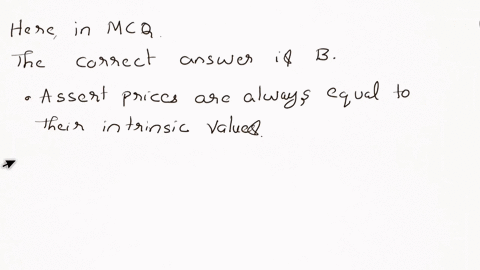 Here, in MCQ.
The correct answer is B.
• Assert prices are always equal to
their intrinsic values.